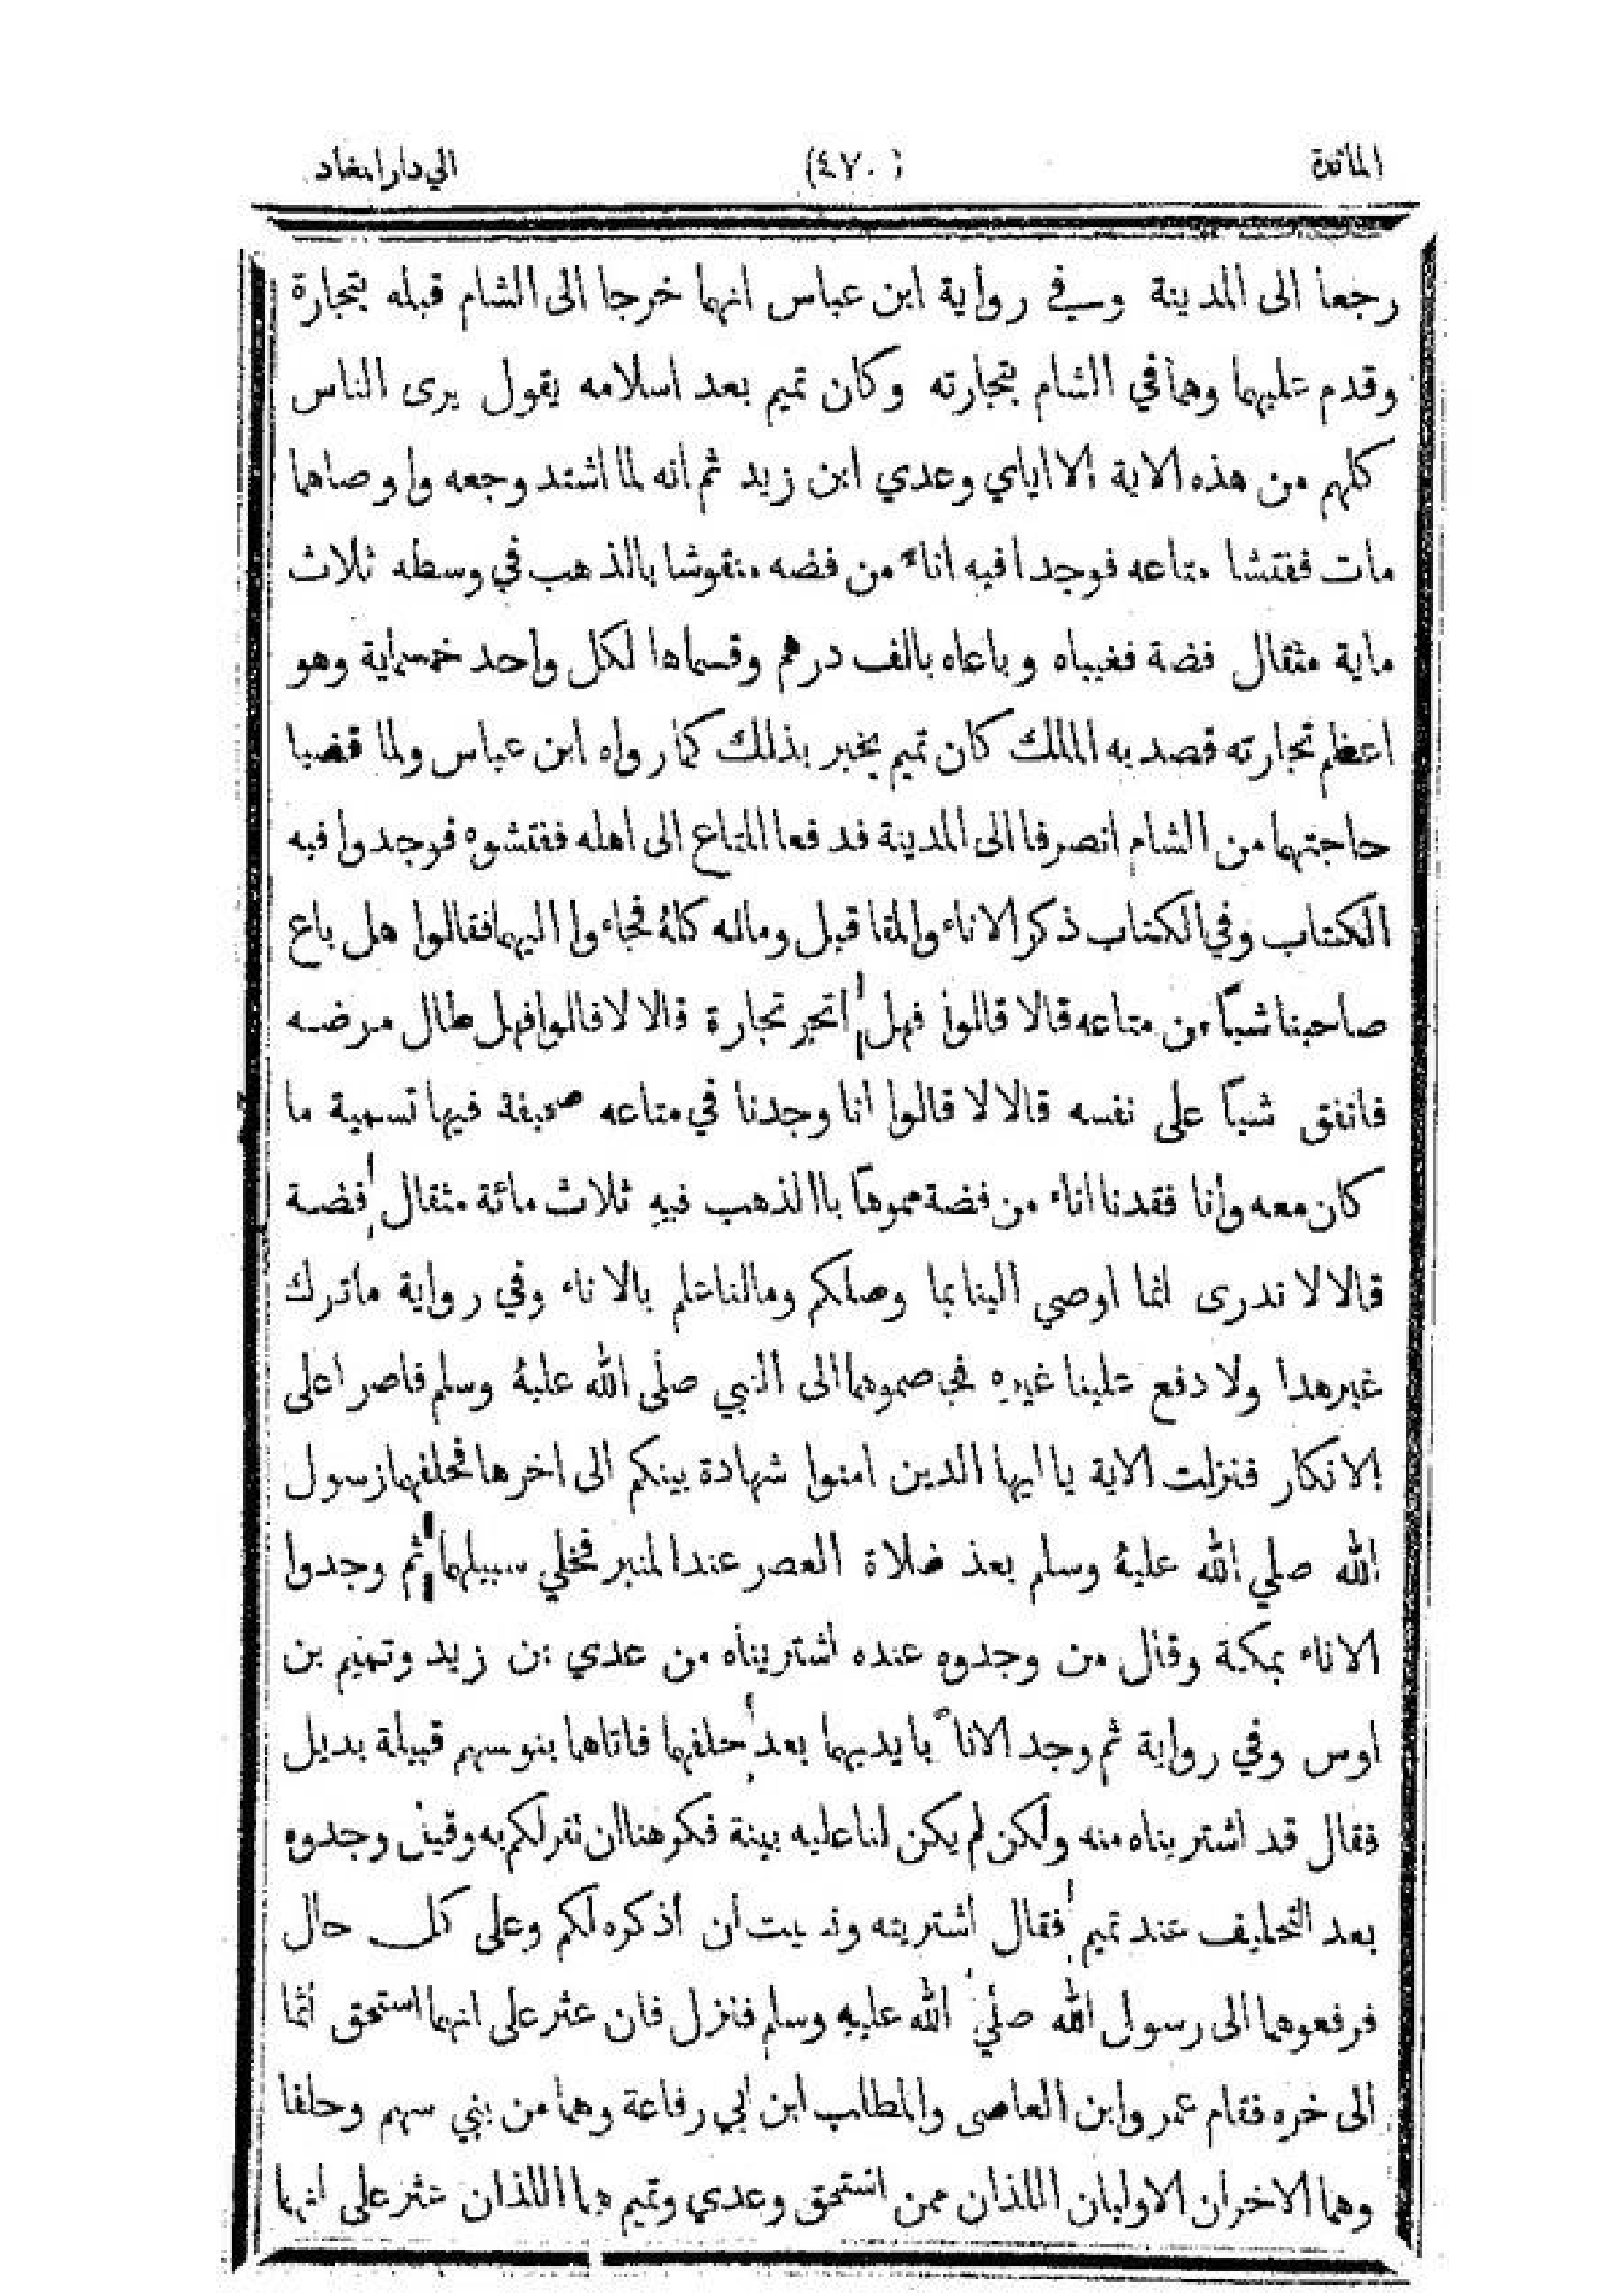 المائدة (٤٧٠) الي دار المعاد
رجعا الى المدينة وفي رواية ابن عباس انهما خرجا الى الشام قبله بتجارة
وقدم عليهما وهما في الشام بتجارته وكان تميم بعد اسلامه يقول يرى الناس
كلهم من هذه الاية الا اياي وعدي ابن زيد ثم انه لما اشتد وجعه واوصاهما
مات ففتشا متاعه فوجدا فيه اناء من فضه منقوشا بالذهب في وسطه ثلاث
ماية مثقال فضة فغيباه وباعاه بالف درهم وقسماها لكل واحد خمسماية وهو
اعظم تجارته قصد به الملك كان تميم يخبر بذلك كما رواه ابن عباس ولما قضيا
حاجتهما من الشام انصرفا الى المدينة فدفعا المتاع الى اهله ففتشوه فوجدوا فيه
الكتاب وفي الكتاب ذكر الاناء والمثاقيل وماله كله فجاءوا اليهما فقالوا هل باع
صاحبنا شيأ من متاعه قالا لا قالوا فهل اتجر تجارة قالا لا قالوا فهل طال مرضه
فانفق شيأ على نفسه قالا لا قالوا انا وجدنا في متاعه صحيفة فيها تسمية ما
كان معه وانا فقدنا اناء من فضة مموها باالذهب فيه ثلاث مائة مثقال فضة
قالا لا ندرى انما اوصي الينا بما وصلكم ومالنا علم بالاناء وفي رواية ماترك
غير هدا ولا دفع علينا غيره فخاصموهما الى النبي صلى الله عليه وسلم فاصرا على
الانكار فنزلت الاية يا ايها الدين امنوا شهادة بينكم الى اخرها فحلفهما رسول
الله صلي الله عليه وسلم بعذ ضلاة العصر عند المنبر فخلي سبيلهما ثم وجدوا
الاناء بمكة وقال من وجدوه عنده اشتريناه من عدي بن زيد وتميم بن
اوس وفي رواية ثم وجد الاناء بايديهما بعد حلفهما فاتاهما بنوسهم قبيلة بديل
فقال قد اشتريناه منه ولكن لم يكن لنا عليه بينة فكرهنا ان نقر لكم به وقيل وجدوه
بعد التحليف عند تميم فقال اشتريته ونسيت ان أذكره لكم وعلى كل حال
فرفعوهما الى رسول الله صلي الله عليه وسلم فنزل فان عثر على انهما استحق اثما
الى خره فقام عمر وابن العاصى والمطلب ابن ابي رفاعة وهما من بني سهم وحلفا
وهما الاخران الاوليان اللذان ممن استحق وعدي وتميم هما اللذان عثر على انهما